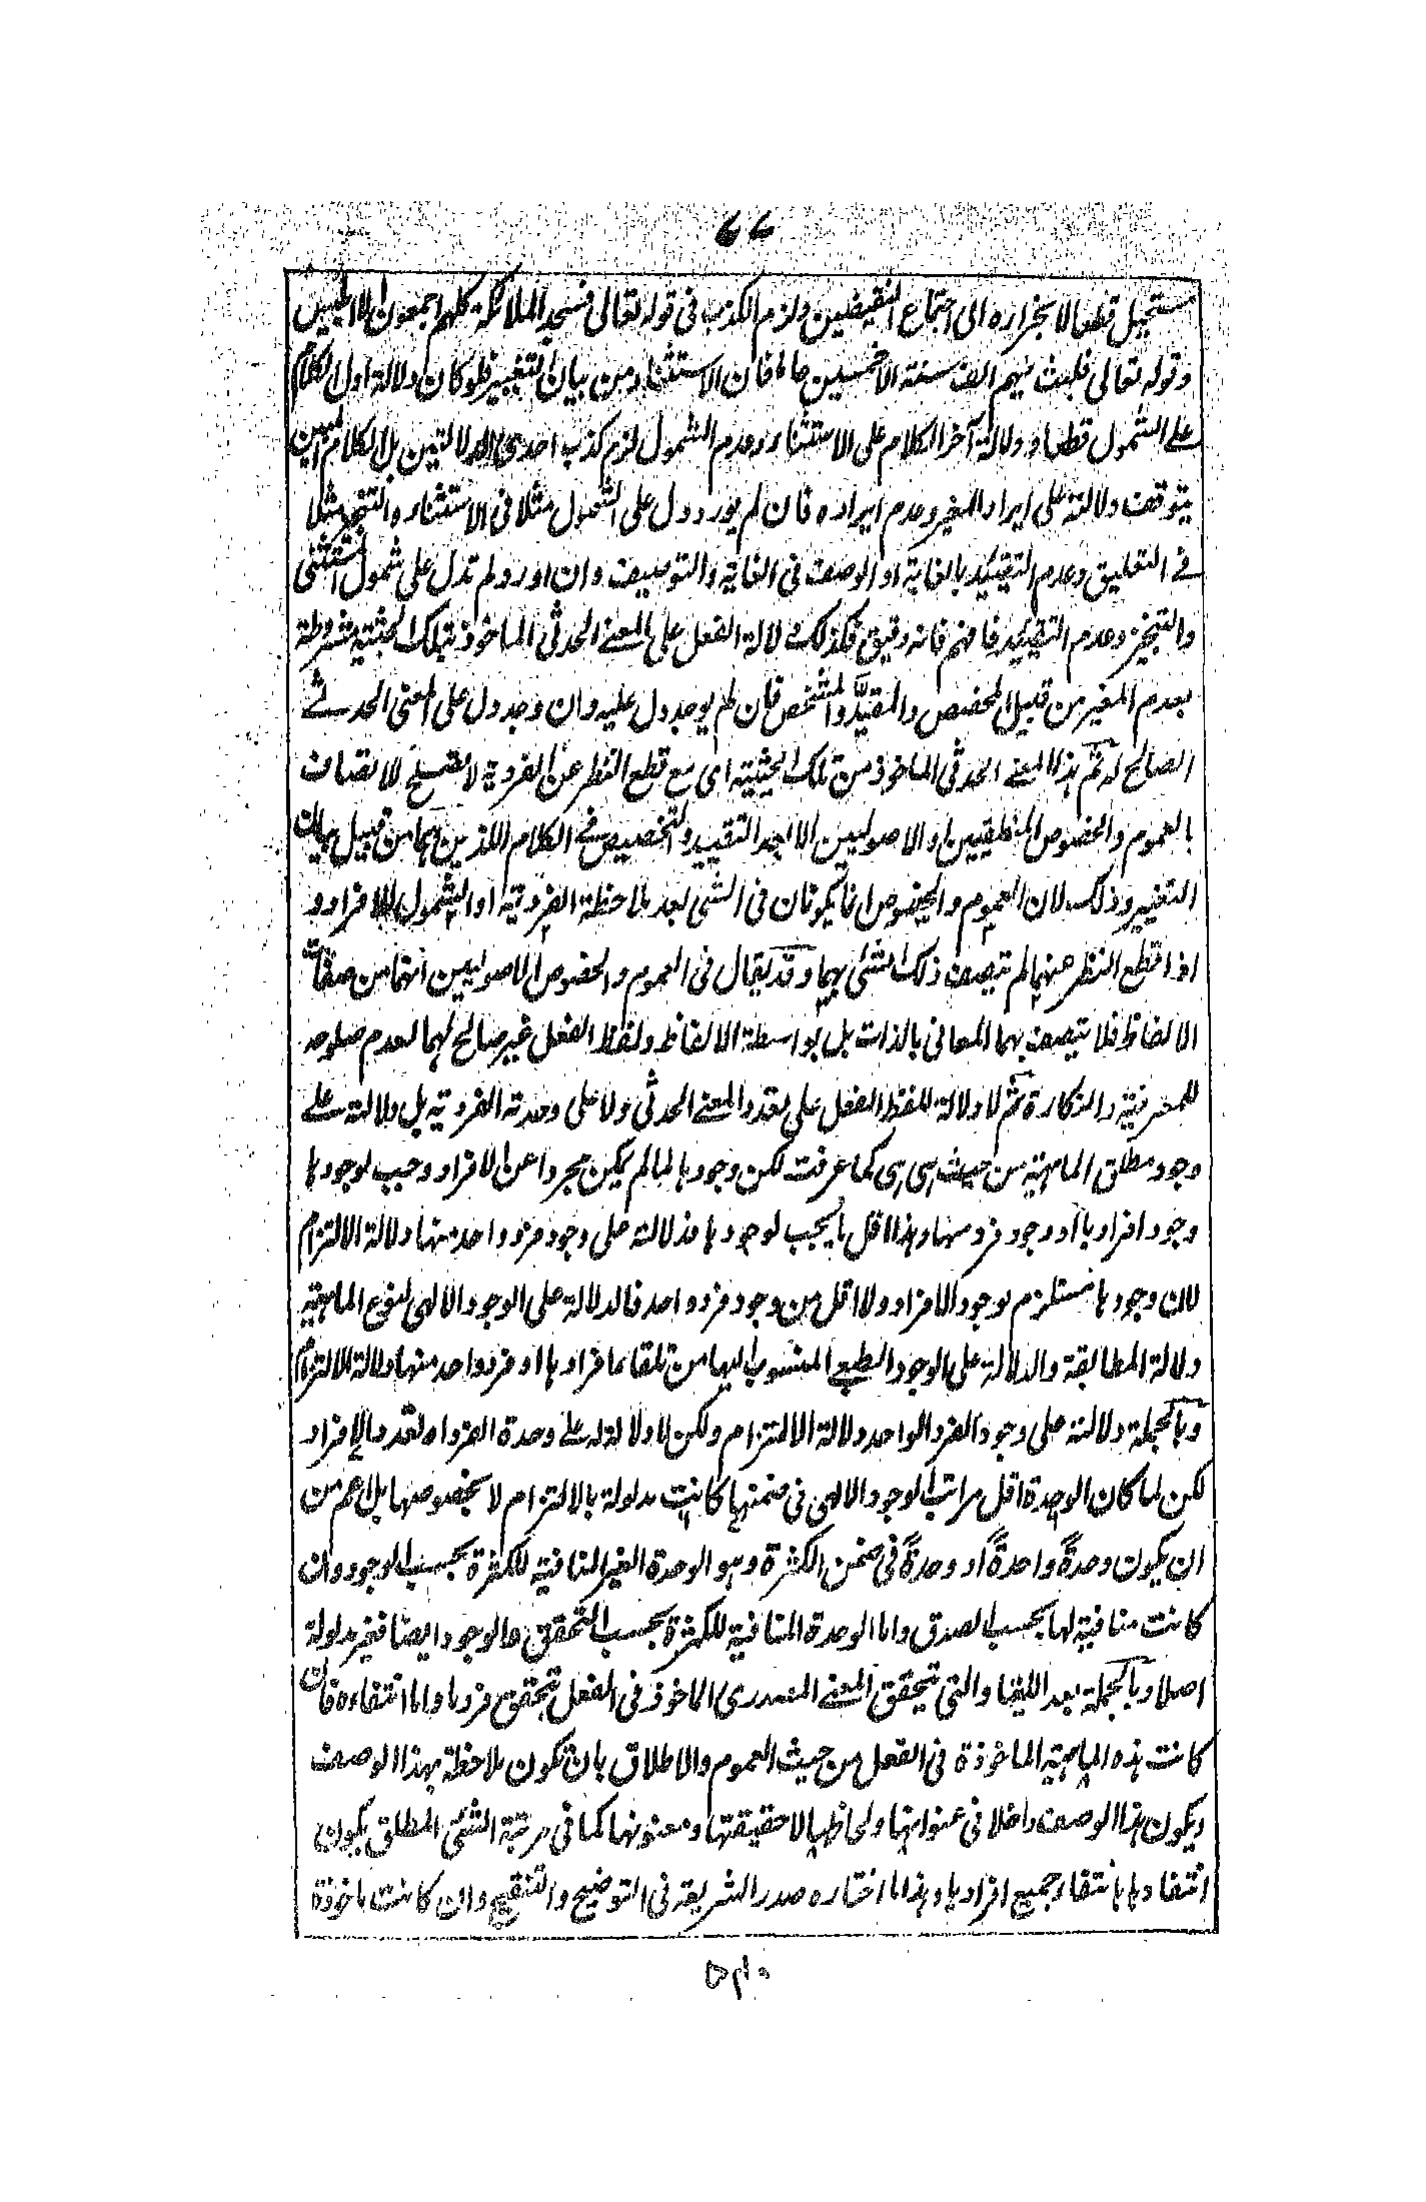 ٧٧
مستحيل قطعا لانجراره الى اجتماع النقيضين ولزم الكذب فى قوله تعالى فسجد الملائكة كلهم اجمعون الا ابليس
وقوله تعالى فلبث فيهم الف سنة الا خمسين عاما فان الاستثناء من بيان التغيير فلو كان دلالة اول الكلام
على الشمول قطعا ودلالة آخر الكلام على الاستثناء وعدم الشمول لزم كذب احدى الدلالتين بل الكلام
يتوقف دلالته على ايراد المغير وعدم ايراده فان لم يورد دل على الشمول مثلا فى الاستثناء والتنجيز مثلا
فے التعليق وعدم التقييد بالغاية او الوصف فى الغاية والتوصيف وان اورد لم تدل على شمول المستثنى
والتنجيز وعدم التقييد فافهم فانه دقيق فكذلك دلالة الفعل على المعنے الحدثى الماخوذ بتلك الحيثية مشروطة
بعدم المغير من قبيل المخصص والمقيد والمشخص فان لم يوجد دل عليه وان وجد دل على المعنى الحدثے
الصالح له ثم هذا المعنے الحدثى الماخوذ من تلك الحيثية اى مع قطع النظر عن الفردية لا يصلح للاتصاف
بالعموم والخصوص المنطقيين او الاصوليين الا بعد التقييد والتخصيص فے الكلام اللذين هما من قبيل بيان
التغيير وذلك لان العموم والخصوص انما يكونان فى الشئ بعد ملاحظة الفردية او الشمول للافراد و
اذا قطع النظر عنهما لم يتصف ذلك الشئ بهما وقد يقال فى العموم والخصوص الاصوليين انهما من صفات
الالفاظ فلا يتصف بهما المعانى بالذات بل بواسطة الالفاظ ولفظ الفعل غير صالح لهما لعدم صلوحه
للمعرفية والنكارة ثم لا دلالة للفظ الفعل على تعدد المعنے الحدثى ولا على وحدته الفردية بل دلالته علے
وجود مطلق الماهية من حيث هى هى كما عرفت لكن وجودها لما لم يكن مجردا عن الافراد وجب لوجودها
وجود افرادها او وجود فرد منها وهذا اقل ما يجب لوجودها فدلالته على وجود فرد واحد منها دلالة الالتزام
لان وجودها مستلزم لوجود الافراد ولا اقل من وجود فرد واحد فالدلالة على الوجود الالهى لنوع الماهية
دلالة المطابقة والدلالة على الوجود الطبعے المنسوب اليها من تلقاء افرادها او فرد واحد منها دلالة الالتزام
وبالجملة دلالته على وجود الفرد الواحد دلالة الالتزام ولكن لا دلالة له علے وحدة الفرد او تعدد الافراد
لكن لما كان الوحدة اقل مراتب الوجود الالهى فى ضمنها كانت مدلولة بالالتزام لا بخصوصها بل اعم من
ان يكون وحدةً واحدةً او وحدةً فى ضمن الكثرة وهو الوحدة الغير المنافية للكثرة بحسب الوجود وان
كانت منافية لها بحسب الصدق واما الوحدة المنافية للكثرة بحسب التحقق والوجود ايضا فغير مدلولة
اصلا وبالجملة بعد اللتيا والتى تتحقق المعنے المصدرى الماخوذ فى الفعل بتحقق فرد ما واما انتفاءه فان
كانت هذه الماهية الماخوذة فى الفعل من حيث العموم والاطلاق بان تكون ملاحظة بهذا الوصف
ويكون هذا الوصف داخلا فى عنوانها ولحاظها لا حقيقتها ومعنونها كما فى مرتبة الشئ المطلق يكون
انتفاءها بانتفاء جميع افرادها وهذا ما اختاره صدر الشريعة فى التوضيح والتنقيح وان كانت ماخوذة